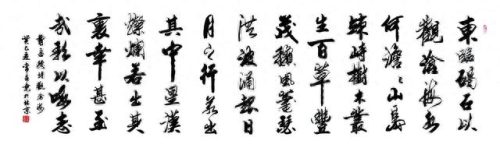 東臨碣石以
觀滄海水
何澹〻山島
竦峙樹木叢
生百草豐
茂穐風蕭瑟
洪波涌起日
月之行若出
其中星漢
燦爛若出其
裏幸甚至
哉歌以咏志
曹孟德詩觀滄海